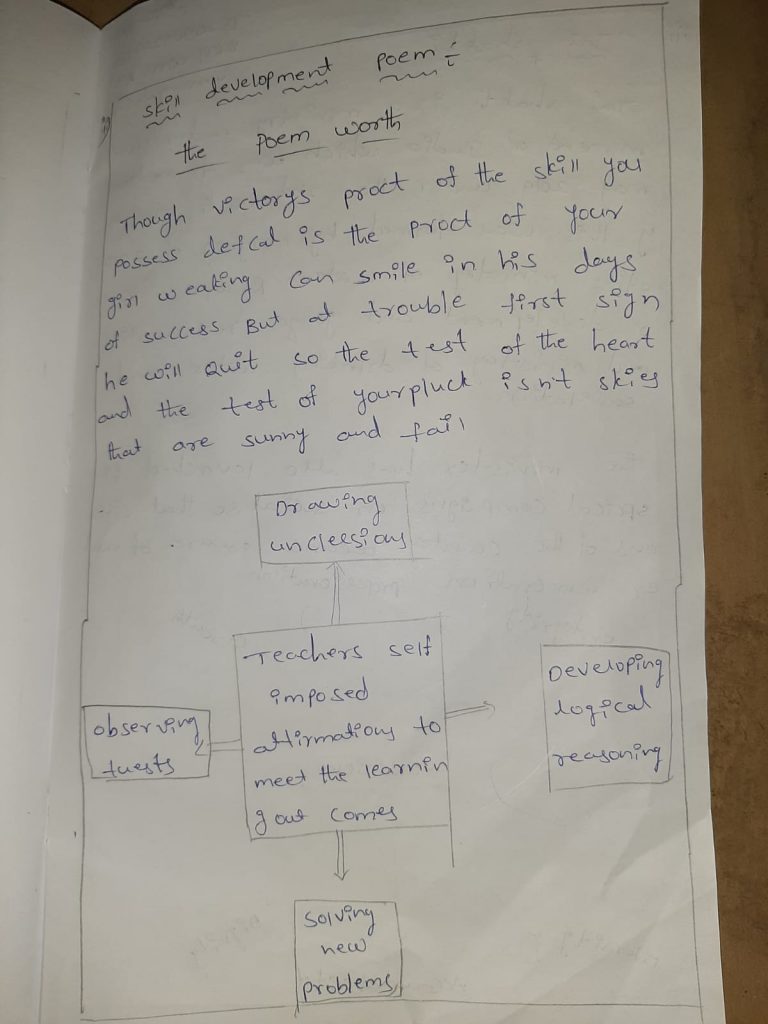 skill development poem :-
the Poem worth
Though victorys proct of the skill you
possess defcal is the proct of your
girl weaking can smile in his days
of success But at trouble first sign
he will Quit so the test of the heart
and the test of yourpluck isn't skies
that are sunny and fail
Drawing
unclessions
Teachers self
imposed
affirmations to
meet the learnin
g out comes
Developing
logical
reasoning
observing
tuests
solving
new
problems